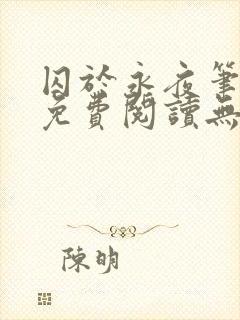 囚於永夜筆
免費閱讀無
陳明